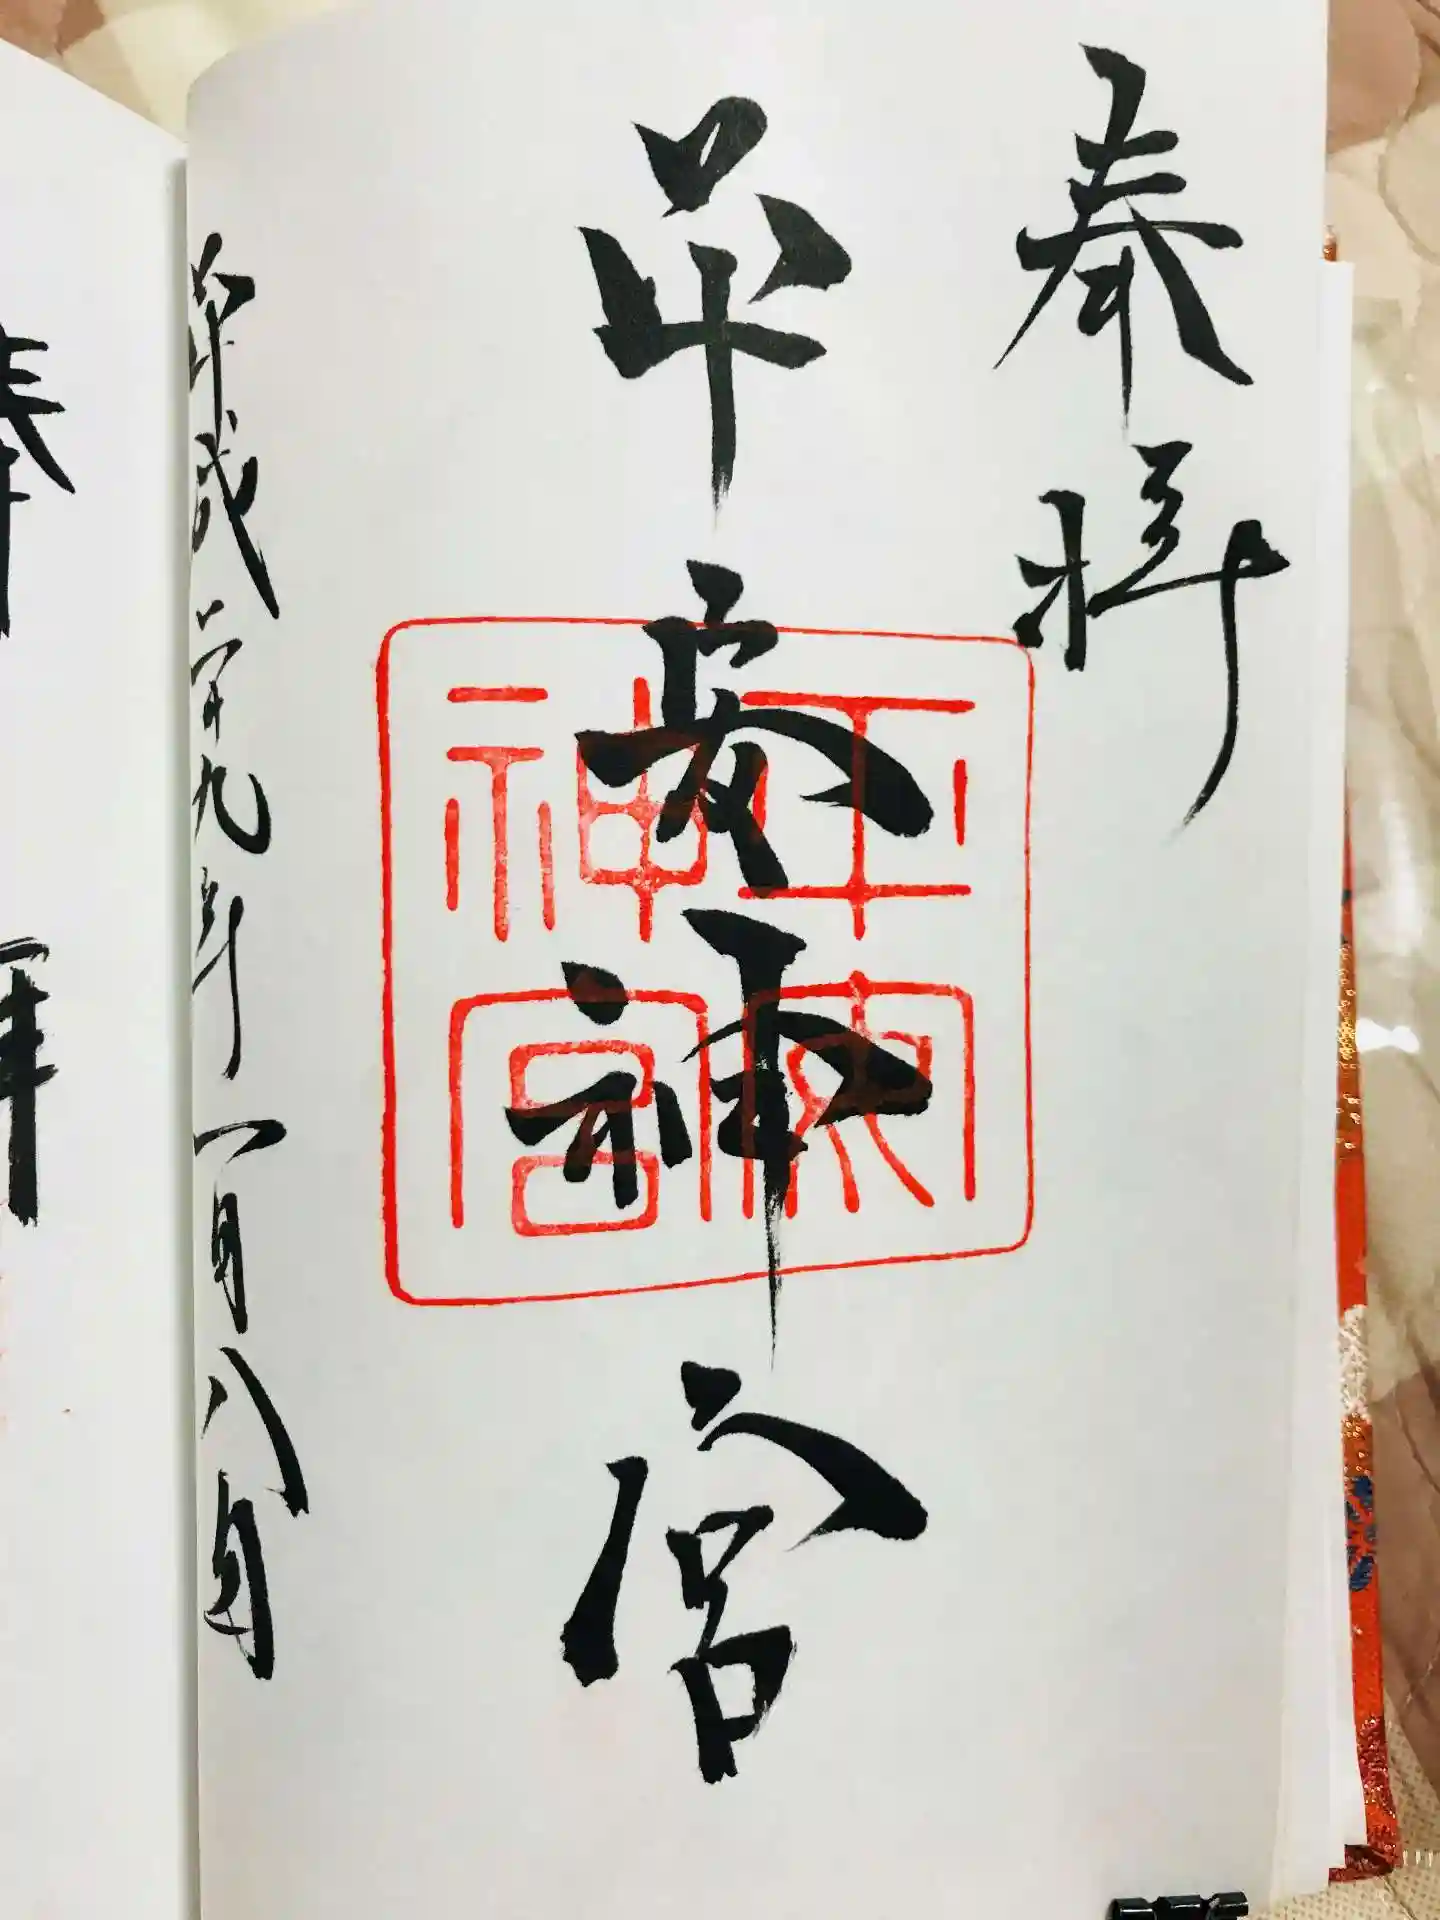 奉拝
平安神宮
平安神宮
平成二十九年一月八日
奉拝